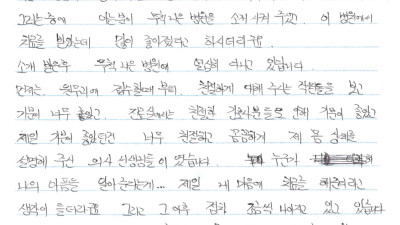 그러는 중에 어느분이 누가나은 병원을 소개 시켜 주었고. 이 병원에서
치료를 받았는데 많이 좋아졌다고 하시더라구요.
소개 받은후 누가 나은 병원에 오게 되었습니다.
먼저는 원무과에 접수할때 부터, 친절하게 대해 주는 직원들을 보고
기분이 너무 좋았고. 간호실에서는 친절한 간호사분들로 인해 기분이 좋았고
제일 기분이 좋았던건 너무 친절하고 꼼꼼하게 제 몸 상태를
설명해 주신 의사 선생님들이 였습니다. 누군가
나의 아픔을 알아준다는게... 제일 내 마음에 치료를 해준다라고
생각이 들더라구요 그리고 그 이후 점차 조금씩 나아지고 있고 있습니다